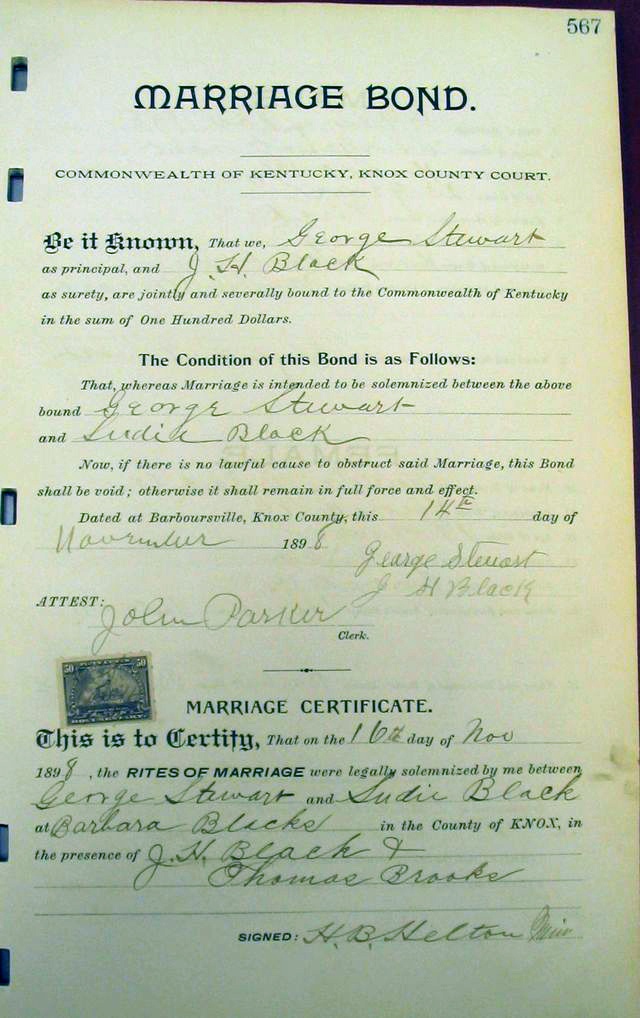 567
MARRIAGE BOND.
COMMONWEALTH OF KENTUCKY, KNOX COUNTY COURT.
Be it Known, That we, George Stewart
as principal, and J. H. Black
as surety, are jointly and severally bound to the Commonwealth of Kentucky
in the sum of One Hundred Dollars.
The Condition of this Bond is as Follows:
That, whereas Marriage is intended to be solemnized between the above
bound George Stewart
and Sudie Black
Now, if there is no lawful cause to obstruct said Marriage, this Bond
shall be void; otherwise it shall remain in full force and effect.
Dated at Barboursville, Knox County, this 14th day of
November 1898
George Stewart
J H Black
ATTEST:
John Parker
Clerk.
50 50
DOCUMENTARY
MARRIAGE CERTIFICATE.
This is to Certify, That on the 16th day of Nov
1898, the RITES OF MARRIAGE were legally solemnized by me between
George Stewart and Sudie Black
at Barbara Blacks in the County of KNOX, in
the presence of J. H. Black &
Thomas Brooks
SIGNED: H. B. Helton Min